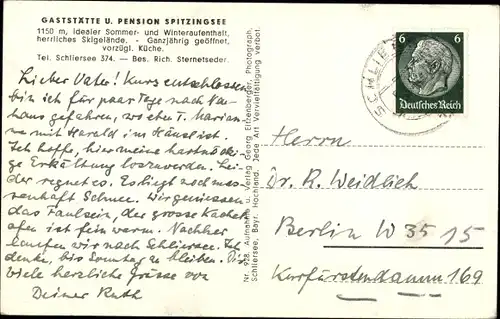 GASTSTÄTTE U. PENSION SPITZINGSEE
1150 m, idealer Sommer- und Winteraufenthalt,
herrliches Skigelände. - Ganzjährig geöffnet,
vorzügl. Küche.
Tel. Schliersee 374. — Bes. Rich. Sternetseder.
Lieber Vater! Kurz entschlossen
bin ich für paar Tage nach
haus gefahren, wo eben T. Marian-
ne mit Harald im Häusl ist.
Ich hoffe, hier meine hartnäcki-
ge Erkältung loszuwerden. Lei-
der regnet es. Es liegt noch mas-
senhaft Schnee. Wir geniessen
das Faulsein, der grosse Kachel-
ofen ist fein warm. Nachher
laufen wir nach Schliersee. Ich
denke, bis Sonntag zu bleiben.
viele herzliche Grüsse von
Deiner Ruth
Nr. 928. Aufnahme u. Verlag Georg Eitzenberger, Photograph,
Schliersee, Bayr. Hochland. Jede Art Vervielfältigung verbot.
SCHLIE
6 6
Deutsches Reich
Herrn
Dr. R. Weidlich
Berlin W 35 15
Kurfürstendamm 169